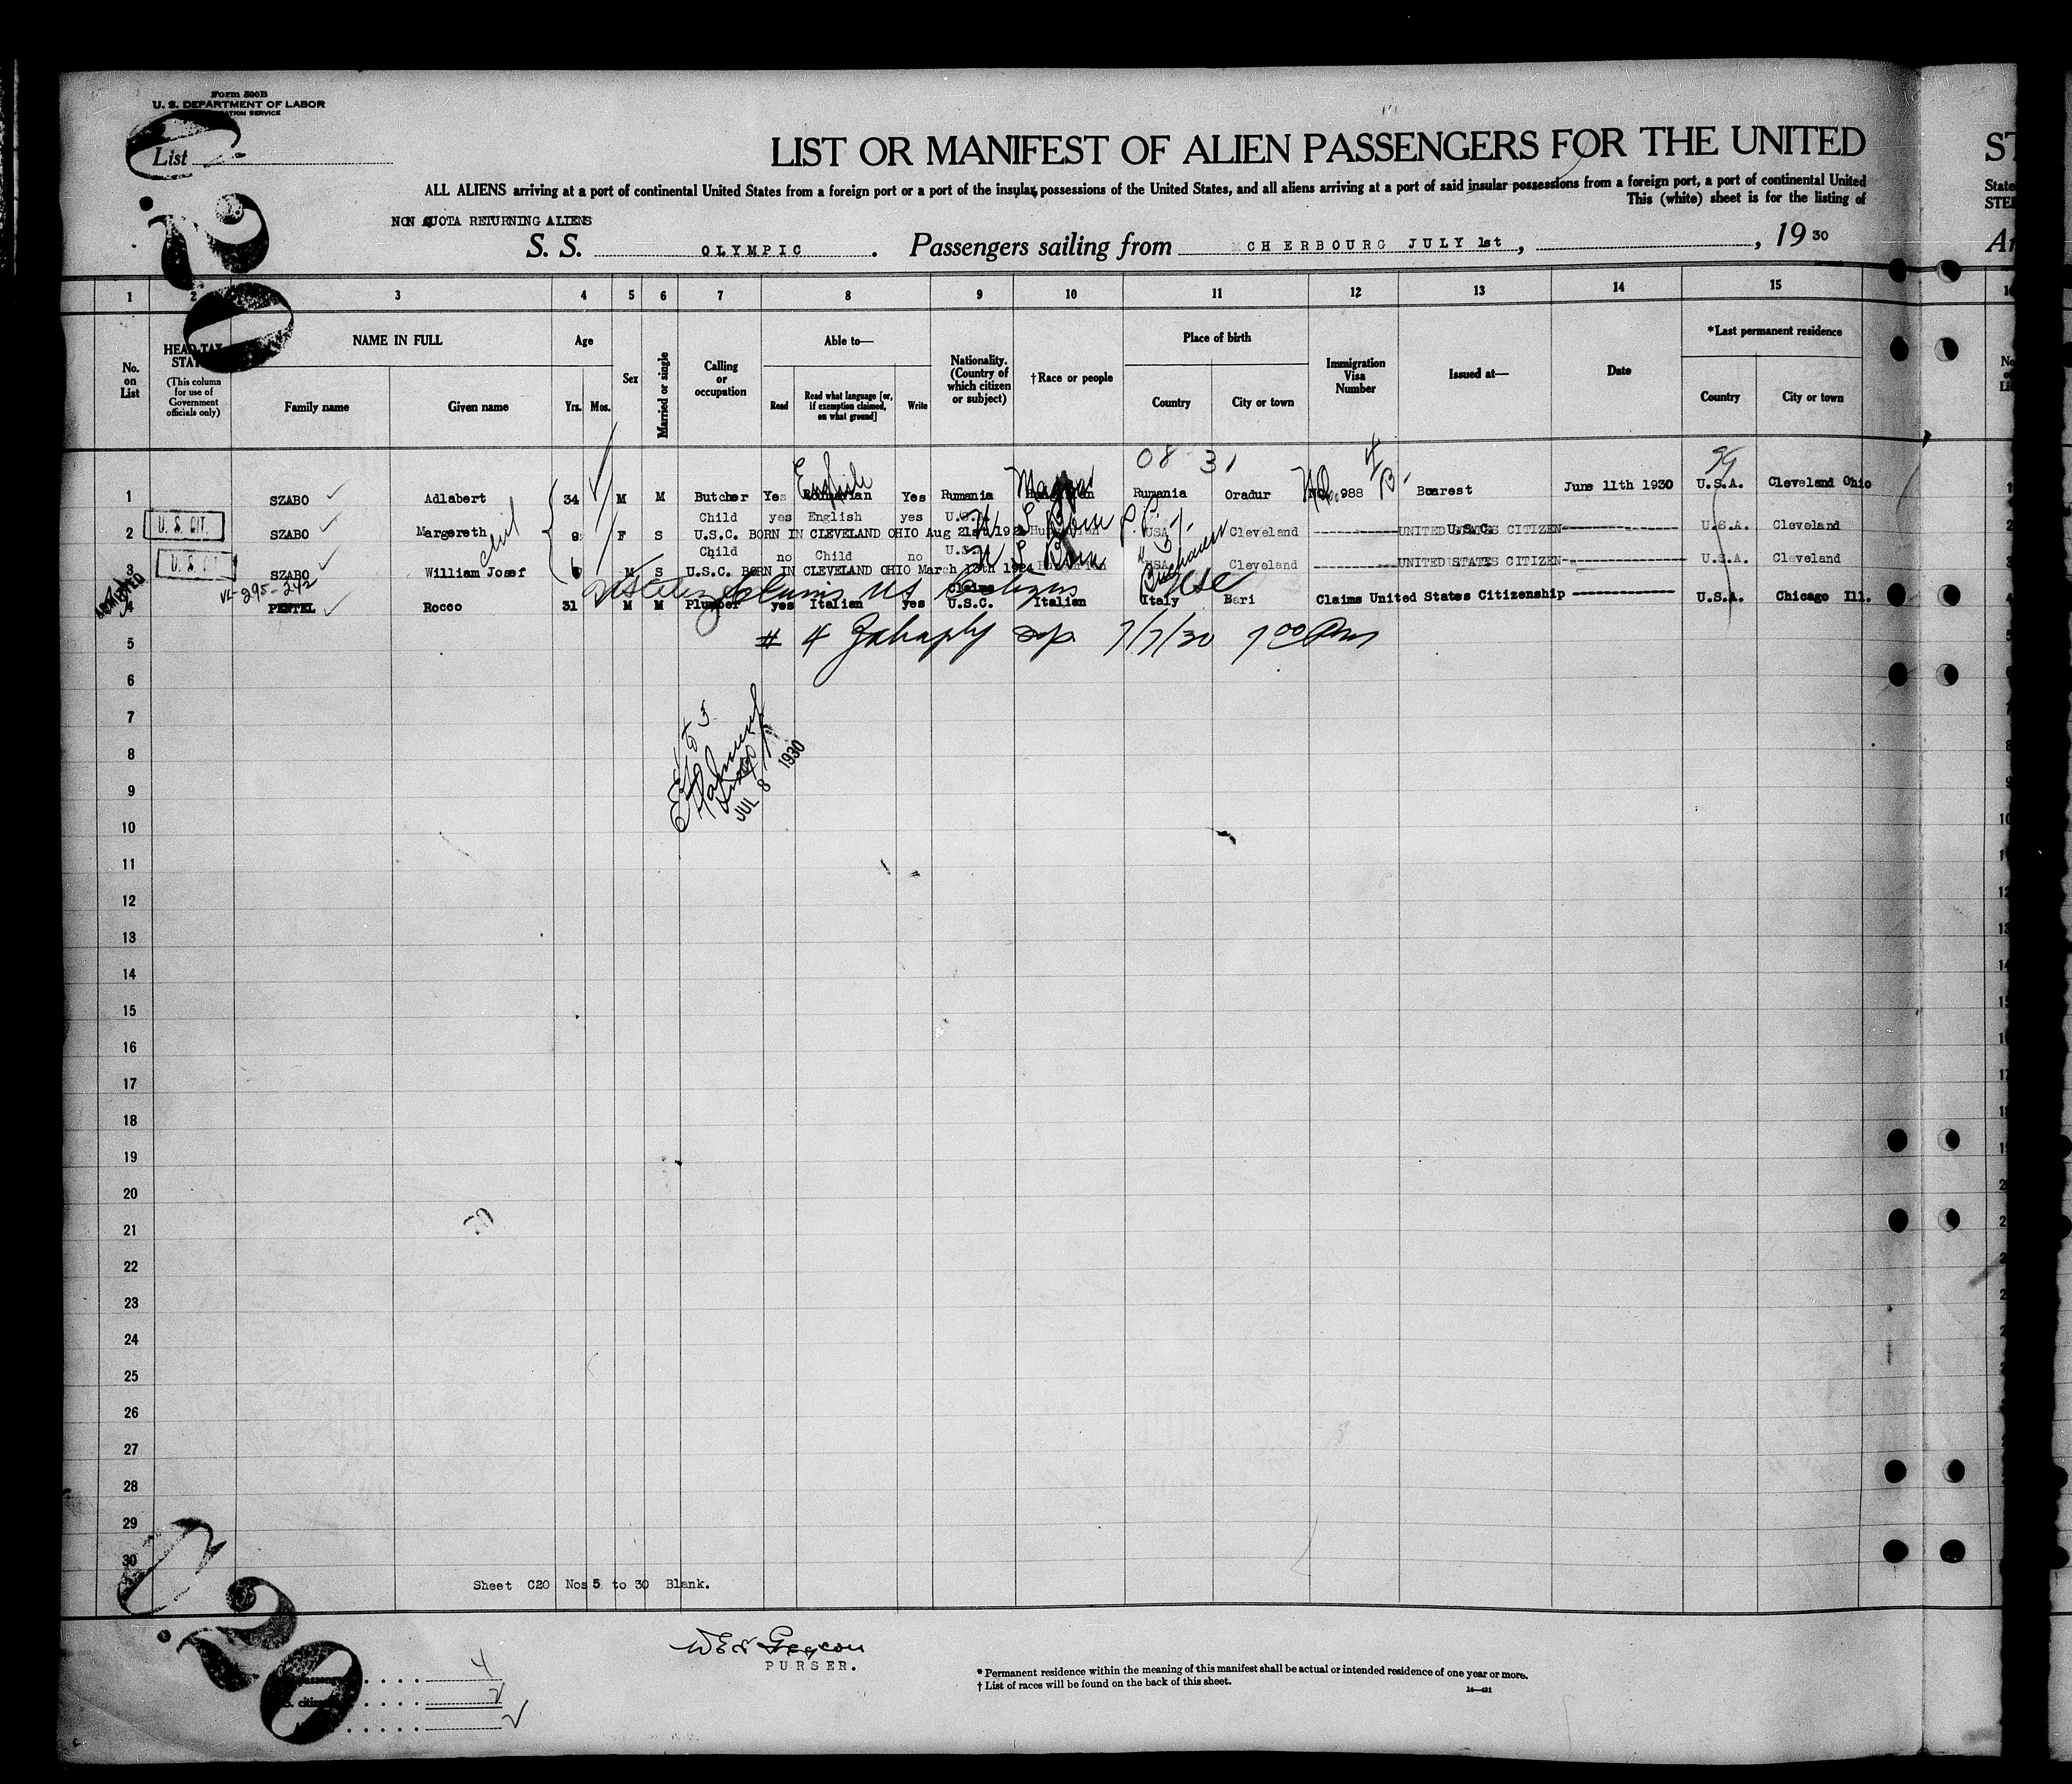 Form 500B
U. S. DEPARTMENT OF LABOR
List
C.20
LIST OR MANIFEST OF ALIEN PASSENGERS FOR THE UNITED
ALL ALIENS arriving at a port of continental United States from a foreign port or a port of the insular possessions of the United States, and all aliens arriving at a port of said insular possessions from a foreign port, a port of continental United
This (white) sheet is for the listing of
NON QUOTA RETURNING ALIENS
S. S. OLYMPIC. Passengers sailing from CHERBOURG JULY 1st, , 19 30
1 2 3 4 5 6 7 8 9 10 11 12 13 14 15
No. on List
HEAD-TAX STATUS (This column for use of Government officials only)
NAME IN FULL
Family name
Given name
Age
Yrs. Mos.
Sex
Married or single
Calling or occupation
Able to—
Read
Read what language [or, if exemption claimed, on what ground]
Write
Nationality. (Country of which citizen or subject)
†Race or people
Place of birth
Country
City or town
Immigration Visa Number
Issued at—
Date
*Last permanent residence
Country
City or town
08 31
English Magyar
1 SZABO Adlabert 34 M M Butcher Yes Roumanian Yes Rumania Rumania Oradur No. 988 Bucarest June 11th 1930 U.S.A. Cleveland Ohio
Child yes English yes U.S.A.
2 U. S. CIT. SZABO Margereth F S U.S.C. BORN IN CLEVELAND OHIO Aug 21st USA Cleveland UNITED STATES CITIZEN U.S.A. Cleveland
U S Born
Child no Child no
3 SZABO William Josef M S U.S.C. BORN IN CLEVELAND OHIO March 13th 1924 USA Cleveland UNITED STATES CITIZEN U.S.A. Cleveland
U S Born
Bucharest
ADMITTED
Claims US Citizen
Claims
4 PENTEL Rocco 31 M M Plumber yes Italian yes U.S.C. Italian Italy Bari Claims United States Citizenship U.S.A. Chicago Ill.
# 4 7/7/30 7 00 Pm
5
6
7
8
JUL 8 1930
9
10
11
12
13
14
15
16
17
18
19
20
21
22
23
24
25
26
27
28
29
30
Sheet C20 Nos 5 to 30 Blank.
C.20
PURSER.
4
2
2
* Permanent residence within the meaning of this manifest shall be actual or intended residence of one year or more.
† List of races will be found on the back of this sheet.
14—431